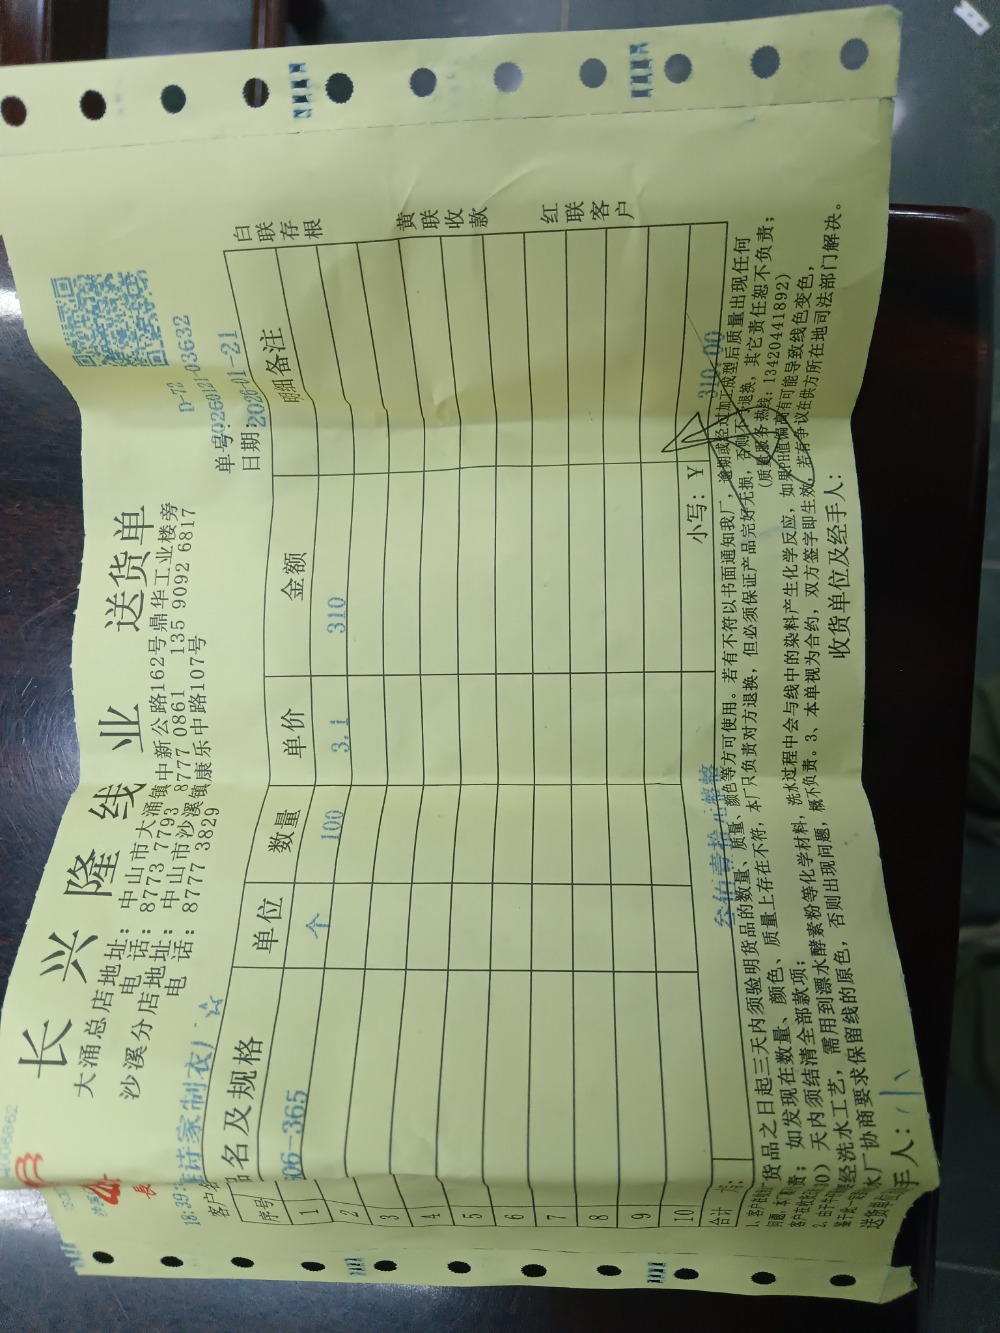 长兴隆线业 送货单
大涌总店地址:中山市大涌镇中新公路162号鼎华工业楼旁
电 话:8773 7793 8777 0861 135 9092 6817
沙溪分店地址:中山市沙溪镇康乐中路107号
电 话:8777 3829
D-72
单号:20260121-03632
日期:2026-01-21
18:39:
客户名 诗家制衣厂 ☆
序号 品名及规格 单位 数量 单价 金额 明细备注
1 06-365 个 100 3.1 310
2
3
4
5
6
7
8
9
10
合计 叁佰壹拾元整 小写:Y 310.00
白联存根
黄联收款
红联客户
货品之日起三天内须验明货品的数量、质量、颜色等方可使用。若有不符以书面通知我厂,逾期或经过加工成型后质量出现任何
责;如发现在数量、颜色、质量上存在不符,本厂只负责对方退换,但必须保证产品完好无损,否则不予退换,其它责任恕不负责;
10)天内须结清全部款项;(质量服务热线:13420441892)
经洗水工艺,需用到漂水酵素粉等化学材料,洗水过程中会与线中的染料产生化学反应,如果PH值偏高有可能导致线色变色,
水厂协商要求保留线的原色,否则出现问题,概不负责。3、本单视为合约,双方签字即生效,若有争议在供方所在地司法部门解决。
手人: 收货单位及经手人: